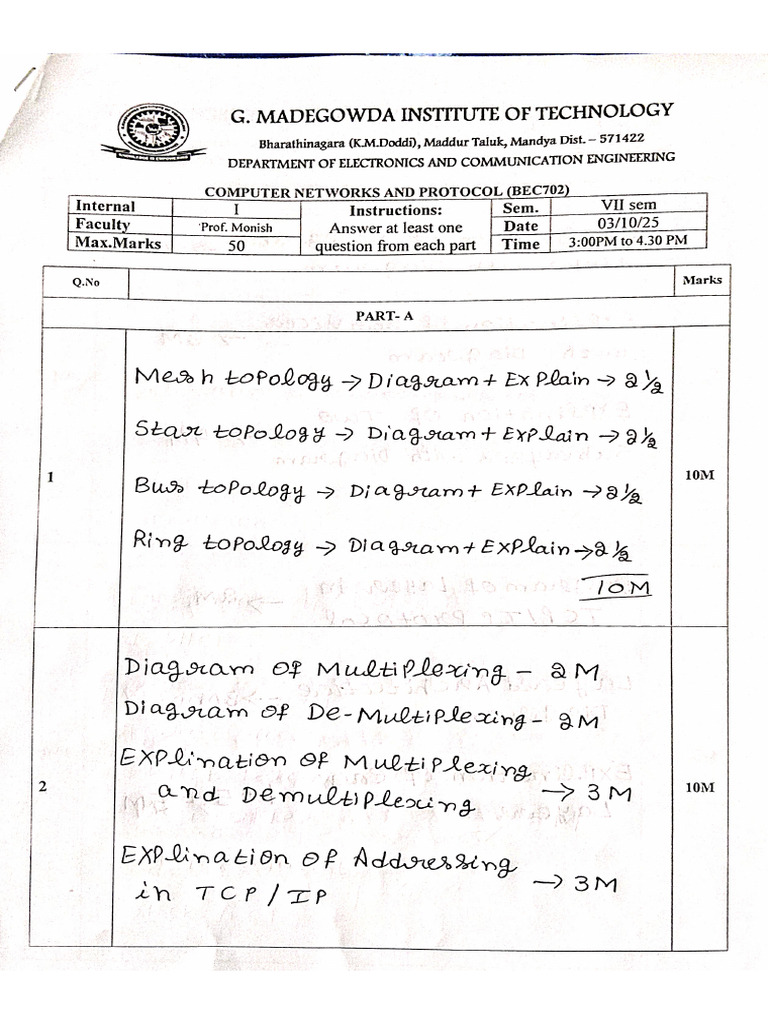 G. MADEGOWDA INSTITUTE OF TECHNOLOGY
Bharathinagara (K.M.Doddi), Maddur Taluk, Mandya Dist. – 571422
DEPARTMENT OF ELECTRONICS AND COMMUNICATION ENGINEERING
COMPUTER NETWORKS AND PROTOCOL (BEC702)
Internal I Instructions: Sem. VII sem
Faculty Prof. Monish Answer at least one Date 03/10/25
Max.Marks 50 question from each part Time 3:00PM to 4.30 PM
Q.No Marks
PART- A
Mesh topology → Diagram + Explain → 2 ½
Star topology → Diagram + Explain → 2 ½
1 10M
Bus topology → Diagram + Explain → 2 ½
Ring topology → Diagram + Explain → 2 ½
10M
Diagram of Multiplexing – 2M
Diagram of De-Multiplexing – 2M
Explination of Multiplexing
2 and Demultiplexing → 3M 10M
Explination of Addressing
in TCP/IP → 3M